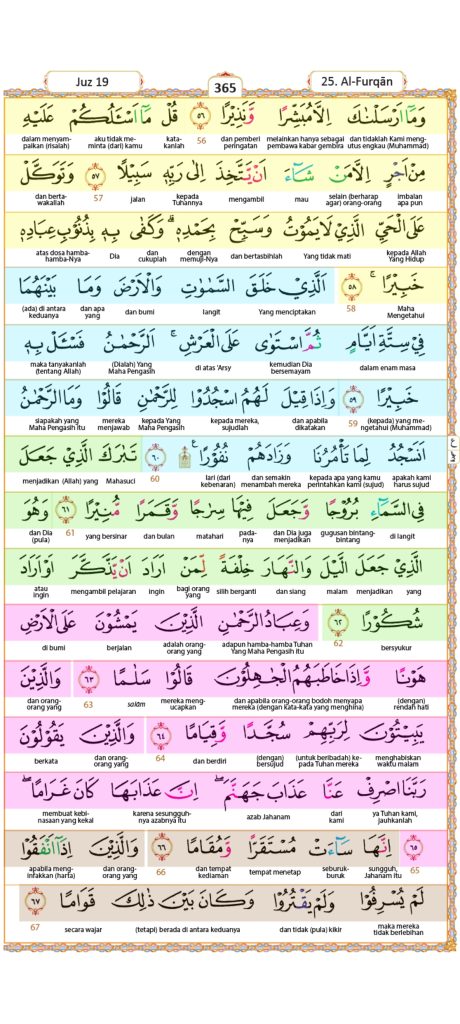 Juz 19
365
25. Al-Furqān
وَمَآ اَرْسَلْنٰكَ اِلَّا مُبَشِّرًا وَّنَذِيْرًا ٥٦ قُلْ مَآ اَسْـَٔلُكُمْ عَلَيْهِ
dan tidaklah Kami meng-utus engkau (Muhammad) melainkan hanya sebagai pembawa kabar gembira dan pemberi peringatan 56 kata-kanlah aku tidak me-minta (dari) kamu dalam menyam-paikan (risalah)
مِنْ اَجْرٍ اِلَّا مَنْ شَاۤءَ اَنْ يَّتَّخِذَ اِلٰى رَبِّهٖ سَبِيْلًا ٥٧ وَتَوَكَّلْ
imbalan apa pun selain (berharap agar) orang-orang mau mengambil kepada Tuhannya jalan 57 dan berta-wakallah
عَلَى الْحَيِّ الَّذِيْ لَا يَمُوْتُ وَسَبِّحْ بِحَمْدِهٖۗ وَكَفٰى بِهٖ بِذُنُوْبِ عِبَادِهٖ
kepada Allah Yang Hidup Yang tidak mati dan bertasbihlah dengan memuji-Nya dan cukuplah Dia atas dosa hamba-hamba-Nya
خَبِيْرًاۚ ٥٨ الَّذِيْ خَلَقَ السَّمٰوٰتِ وَالْاَرْضَ وَمَا بَيْنَهُمَا
Maha Mengetahui 58 Yang menciptakan langit dan bumi dan apa yang (ada) di antara keduanya
فِيْ سِتَّةِ اَيَّامٍ ثُمَّ اسْتَوٰى عَلَى الْعَرْشِۚ اَلرَّحْمٰنُ فَسْـَٔلْ بِهٖ
dalam enam masa kemudian Dia bersemayam di atas 'Arsy (Dialah) Yang Maha Pengasih maka tanyakanlah (tentang Allah)
خَبِيْرًا ٥٩ وَاِذَا قِيْلَ لَهُمُ اسْجُدُوْا لِلرَّحْمٰنِ قَالُوْا وَمَا الرَّحْمٰنُ
(kepada) yang me-ngetahui (Muhammad) 59 dan apabila dikatakan kepada mereka, sujudlah kepada Yang Maha Pengasih mereka menjawab siapakah yang Maha Pengasih itu
اَنَسْجُدُ لِمَا تَأْمُرُنَا وَزَادَهُمْ نُفُوْرًا ۩ ٦٠ تَبٰرَكَ الَّذِيْ جَعَلَ
apakah kami harus sujud kepada apa yang kamu perintahkan kami (sujud) dan semakin menambah mereka lari (dari kebenaran) 60 Mahasuci (Allah) Yang menjadikan
فِى السَّمَاۤءِ بُرُوْجًا وَّجَعَلَ فِيْهَا سِرٰجًا وَّقَمَرًا مُّنِيْرًا ٦١ وَهُوَ
di langit gugusan bintang-bintang dan Dia juga menjadikan pada-nya matahari dan bulan yang bersinar 61 dan Dia (pula)
الَّذِيْ جَعَلَ الَّيْلَ وَالنَّهَارَ خِلْفَةً لِّمَنْ اَرَادَ اَنْ يَّذَّكَّرَ اَوْ اَرَادَ
yang menjadikan malam dan siang silih berganti bagi orang yang ingin mengambil pelajaran atau ingin
شُكُوْرًا ٦٢ وَعِبَادُ الرَّحْمٰنِ الَّذِيْنَ يَمْشُوْنَ عَلَى الْاَرْضِ
bersyukur 62 adapun hamba-hamba Tuhan Yang Maha Pengasih itu adalah orang-orang yang berjalan di bumi
هَوْنًا وَّاِذَا خَاطَبَهُمُ الْجٰهِلُوْنَ قَالُوْا سَلٰمًا ٦٣ وَالَّذِيْنَ
(dengan) rendah hati dan apabila orang-orang bodoh menyapa mereka (dengan kata-kata yang menghina) mereka meng-ucapkan salām 63 dan orang-orang yang
يَبِيْتُوْنَ لِرَبِّهِمْ سُجَّدًا وَّقِيَامًا ٦٤ وَالَّذِيْنَ يَقُوْلُوْنَ
menghabiskan waktu malam (untuk beribadah) ke-pada Tuhan mereka (dengan) bersujud dan berdiri 64 dan orang-orang yang berkata
رَبَّنَا اصْرِفْ عَنَّا عَذَابَ جَهَنَّمَۖ اِنَّ عَذَابَهَا كَانَ غَرَامًاۖ
ya Tuhan kami, jauhkanlah dari kami azab Jahanam karena sesungguh-nya azabnya itu membuat kebi-nasaan yang kekal
٦٥ اِنَّهَا سَاۤءَتْ مُسْتَقَرًّا وَّمُقَامًا ٦٦ وَالَّذِيْنَ اِذَآ اَنْفَقُوْا
65 sungguh, Jahanam itu seburuk-buruk tempat menetap dan tempat kediaman 66 dan orang-orang yang apabila meng-infakkan (harta)
لَمْ يُسْرِفُوْا وَلَمْ يَقْتُرُوْا وَكَانَ بَيْنَ ذٰلِكَ قَوَامًا ٦٧
maka mereka tidak berlebihan dan tidak (pula) kikir (tetapi) berada di antara keduanya secara wajar 67